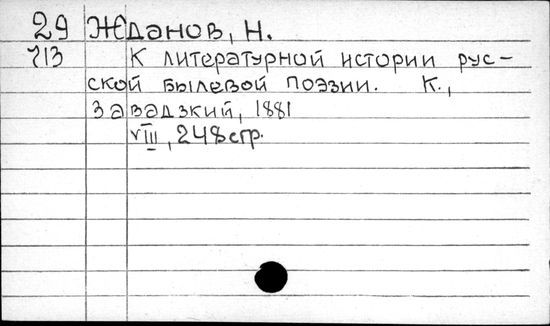 29 Жданов, Н.
713 К литературной истории рус-
ской былевой поэзии. К.,
Завадзкий, 1881
VIII, 248 стр.